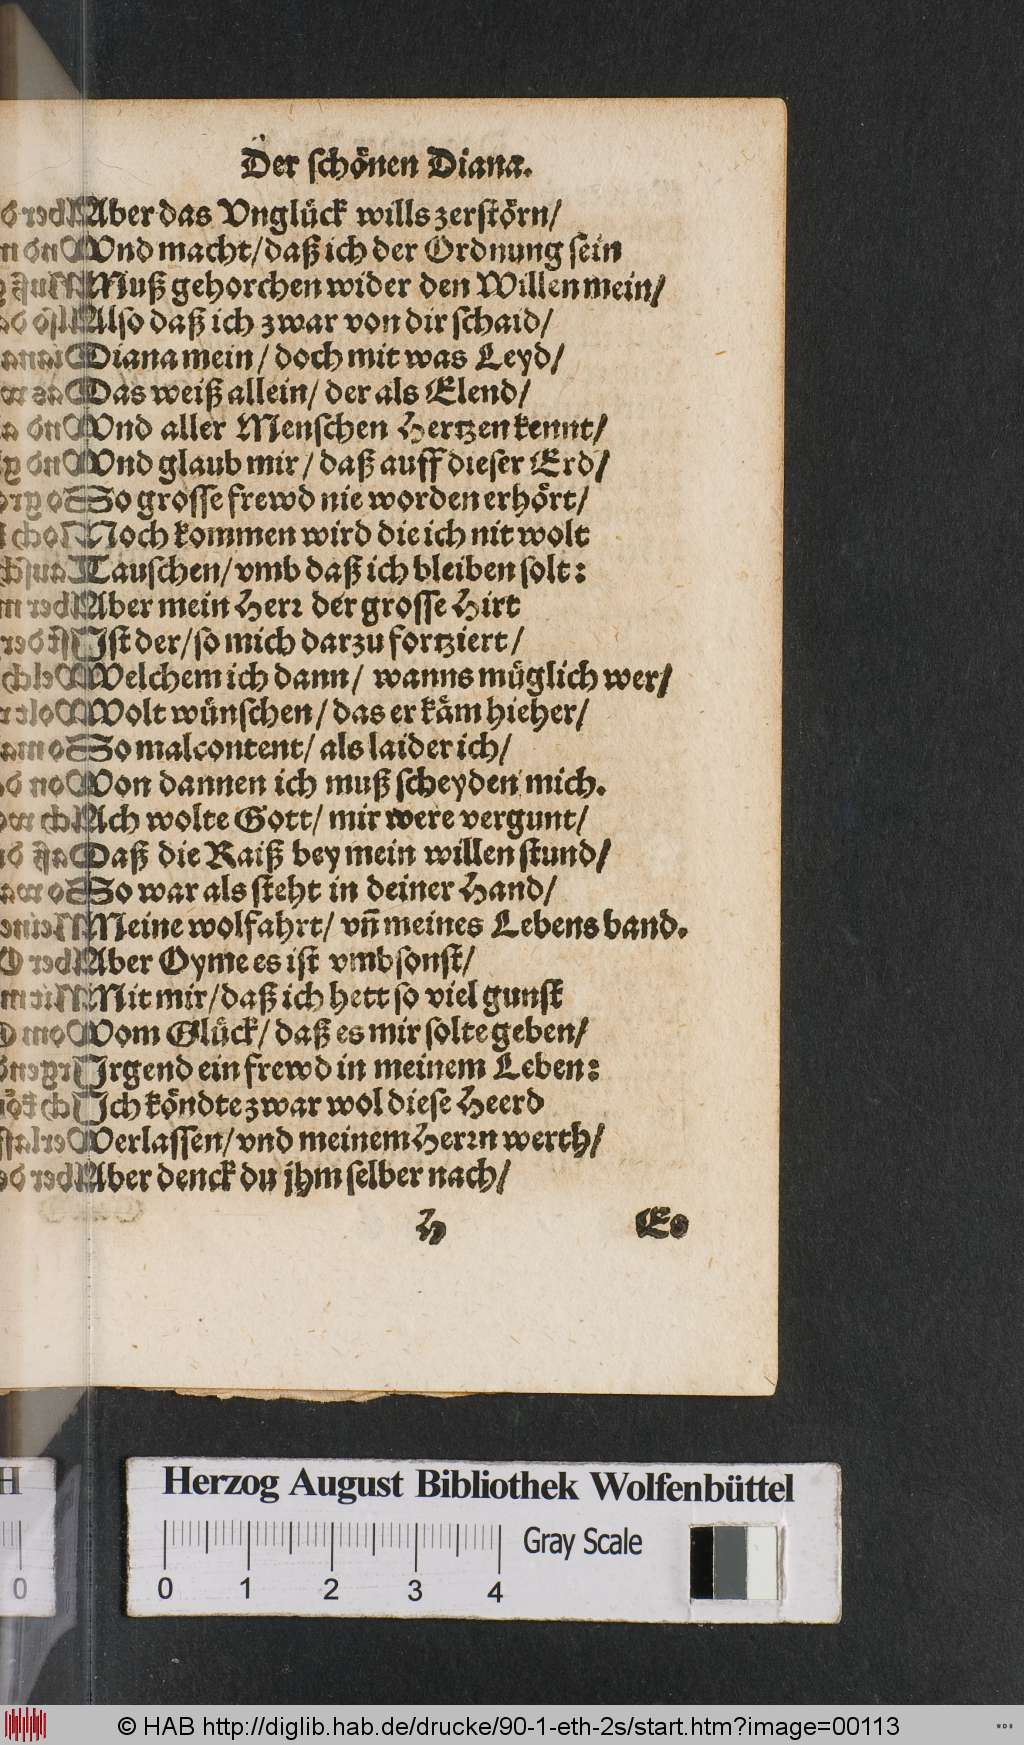 Der schoͤnen Diana.
Aber das Vngluͤck wills zerstoͤrn/
Vnd macht/ daß ich der Ordnung sein
Muß gehorchen wider den Willen mein/
Also daß ich zwar von dir schaid/
Diana mein/ doch mit was Leyd/
Das weiß allein/ der als Elend/
Vnd aller Menschen Hertzen kennt/
Vnd glaub mir/ daß auff dieser Erd/
So grosse frewd nie worden erhoͤrt/
Noch kommen wird die ich nit wolt
Tauschen/ vmb daß ich bleiben solt:
Aber mein Herꝛ der grosse Hirt
Ist der/ so mich darzu fortziert/
Welchem ich dann/ wanns muͤglich wer/
Wolt wuͤnschen/ das er kaͤm hieher/
So malcontent/ als laider ich/
Von dannen ich muß scheyden mich.
Ach wolte Gott/ mir were vergunt/
Daß die Raiß bey mein willen stund/
So war als steht in deiner Hand/
Meine wolfahrt/ vñ meines Lebens band.
Aber Oyme es ist vmbsonst/
Mit mir/ daß ich hett so viel gunst
Vom Gluͤck/ daß es mir solte geben/
Irgend ein frewd in meinem Leben:
Ich koͤndte zwar wol diese Heerd
Verlassen/ vnd meinem Herꝛn werth/
Aber denck du jhm selber nach/
H Es
Herzog August Bibliothek Wolfenbüttel
Gray Scale
0 1 2 3 4
© HAB http://diglib.hab.de/drucke/90-1-eth-2s/start.htm?image=00113